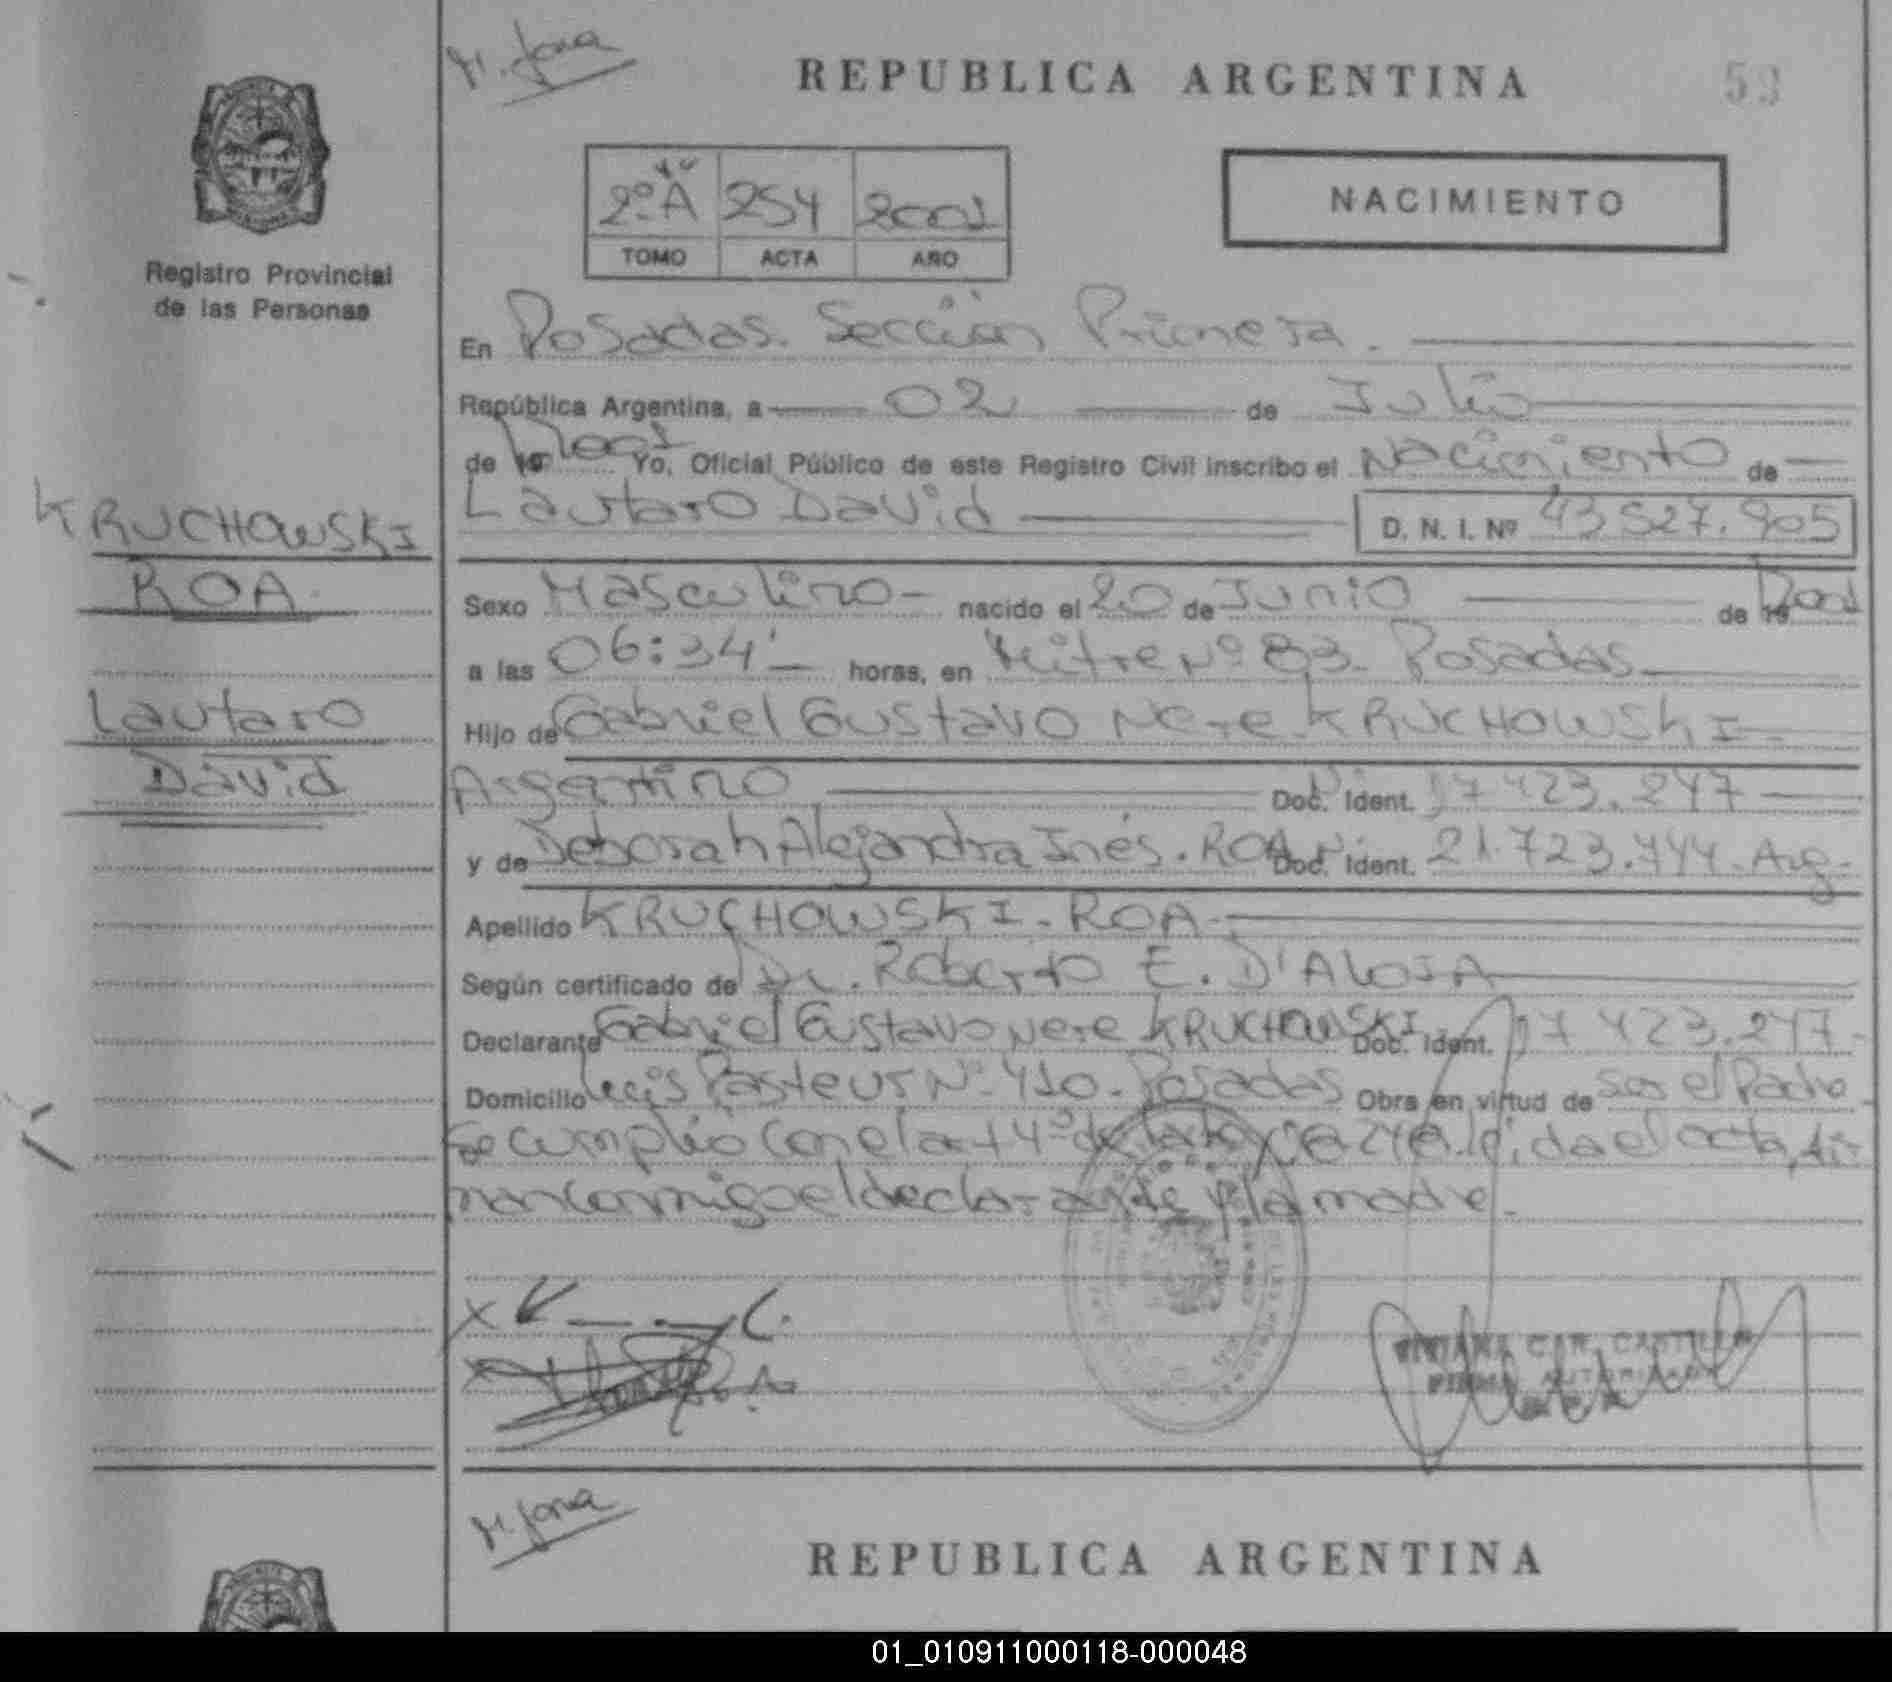 M. Jona
REPUBLICA ARGENTINA
59
2º A 254 2001
TOMO ACTA AÑO
NACIMIENTO
Registro Provincial
de las Personas
En Posadas. Sección Primera.
República Argentina, a 02 de Julio
de 19 2001 Yo, Oficial Público de este Registro Civil inscribo el Nacimiento de
Lautaro David D. N. I. Nº 43.527.905
KRUCHOWSKI
ROA
Lautaro
David
Sexo Masculino nacido el 20 de Junio de 19 2001
a las 06:34' horas, en Mitre Nº 83. Posadas
Hijo de Gabriel Gustavo Nere KRUCHOWSKI
Argentino Doc. Ident. 17.423.247
y de Deborah Alejandra Inés. ROA Doc. Ident. 21.723.444. Arg.
Apellido KRUCHOWSKI - ROA
Según certificado de Dr. Roberto E. D'ALOIA
Declarante Gabriel Gustavo Nere KRUCHOWSKI Doc. Ident. 17.423.247
Domicilio Luis Pasteur Nº 410. Posadas Obra en virtud de ser el Padre
Se cumplió con el art 4º de la Ley leída el acta, fir-
man conmigo el declarante y la madre.
VIVIANA CASTILLO
FIRMA AUTORIZADA
M. Jona
REPUBLICA ARGENTINA
01_010911000118-000048